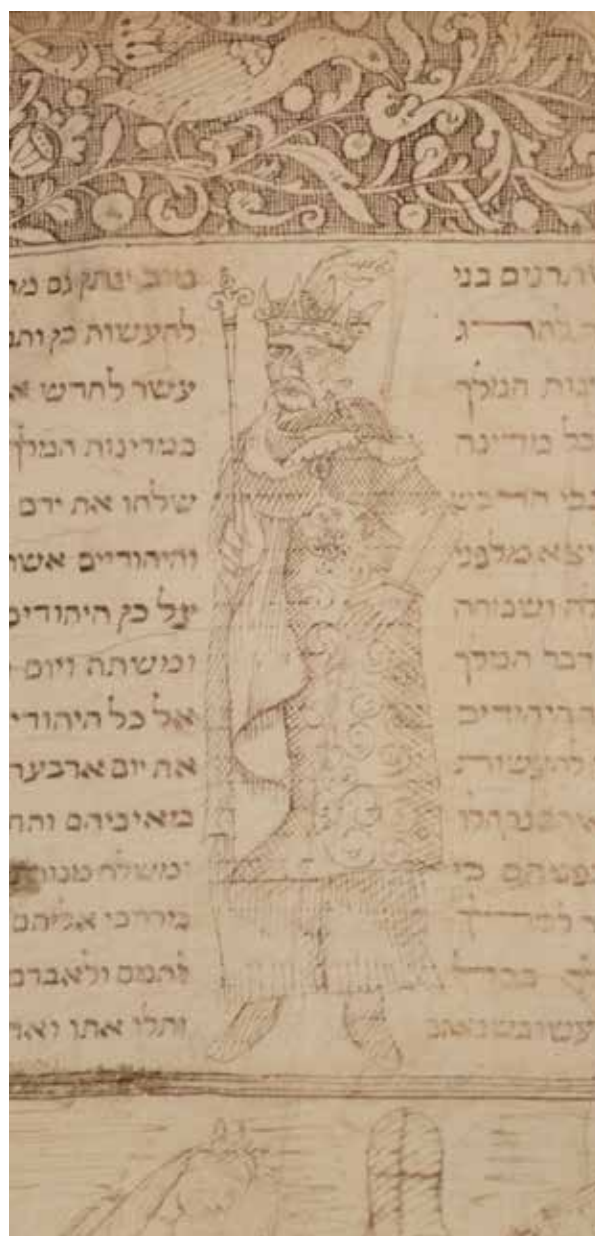 שתרנים בני
להרג
ינות המלך
כל מדינה
כבי הרכש
יצא מלפני
לה ושמחה
דבר המלך
היהודים
להעשות
נקהלו
לפניהם כי
למלך
בכל
עשו בשנאיהם
טוב ינתן גם מ
להעשות כן ותנ
עשר לחדש א
במדינות המלך
שלחו את ידם
והיהודיים אשר
על כן היהודים
ומשתה ויום
אל כל היהודי
את יום ארבעה
מאיביהם ותח
ומשלח מנות
מרדכי אליהם
להמם ולאבדם
ותלו אתו ואת